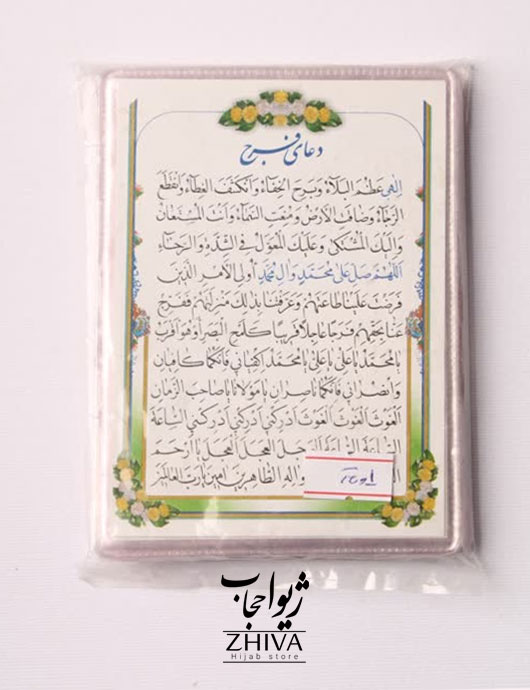 دعای فرج
اِلٰهی عَظُمَ الْبَلاۤءُ وَبَرِحَ الْخَفاۤءُ وَانْكَشَفَ الْغِطاۤءُ وَانْقَطَعَ
الرَّجاۤءُ وَضاقَتِ الْاَرْضُ وَمُنِعَتِ السَّماۤءُ وَاَنْتَ الْمُسْتَعانُ
وَاِلَيْكَ الْمُشْتَكىٰ وَعَلَيْكَ الْمُعَوَّلُ فِي الشِّدَّةِ وَالرَّخاۤءِ
اَللّٰهُمَّ صَلِّ عَلىٰ مُحَمَّدٍ وَاٰلِ مُحَمَّدٍ اُولِي الْاَمْرِ الَّذينَ
فَرَضْتَ عَلَيْنا طاعَتَهُمْ وَعَرَّفْتَنا بِذٰلِكَ مَنْزِلَتَهُمْ فَفَرِّجْ
عَنّا بِحَقِّهِمْ فَرَجاً عاجِلاً قَريباً كَلَمْحِ الْبَصَرِ اَوْ هُوَ اَقْرَبُ
يا مُحَمَّدُ يا عَلِيُّ يا عَلِيُّ يا مُحَمَّدُ اِكْفِياني فَاِنَّكُما كافِيانِ
وَانْصُراني فَاِنَّكُما ناصِرانِ يا مَوْلانا يا صاحِبَ الزَّمانِ
اَلْغَوْثَ الْغَوْثَ الْغَوْثَ اَدْرِكْني اَدْرِكْني اَدْرِكْني السّاعَةَ
السّاعَةَ السّاعَةَ الْعَجَلَ الْعَجَلَ الْعَجَلَ يا اَرْحَمَ
وَاٰلِهِ الطّاهِرينَ اٰمينَ يا رَبَّ الْعالَمينَ
ژیوا حجاب
ZHIVA
Hijab store